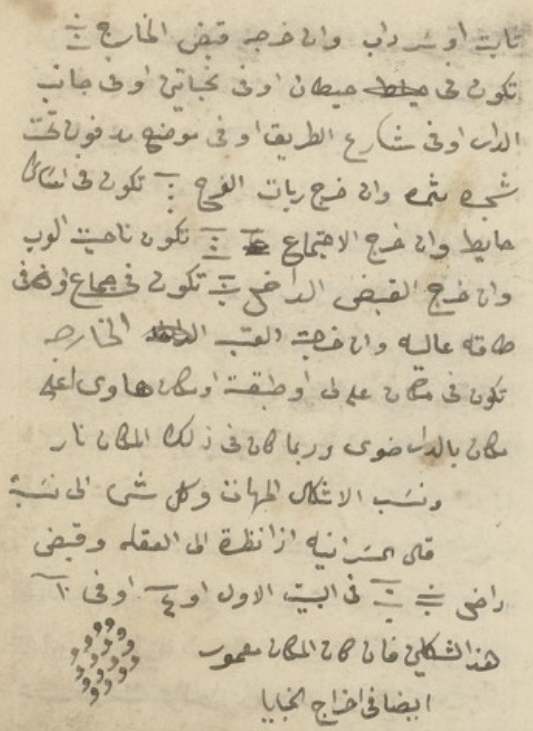 ثابت او سرداب وان خرجه قبض الخارج
تكون فى حيطان اوفى اوفى جانب
الداب اوفى شارع الطريق اوفى موضع مدفون تحت
شجره مثمره وان خرج ريات الفرح تكون فى
حايط وان خرج الاجتماع تكون ناحيت الوب
وان خرج القبض الداخل تكون فى اوفى
طاقه عاليه وان خرجة العتب الخارجه
تكون فى مكان على اوطبقت اومكان هاوى اعلى
مكان بالداب ضوى وربما كان فى ذلك المكان نار
ونسب الاشكال وكل شى الى نسبة
قال اذا نظرة الى العقله وقبض
داخل فى البيت الاول او ٤ اوفى ١٠
هذا الشكلين فان كان المكان معمور
ايضا فى اخراج الخبايا